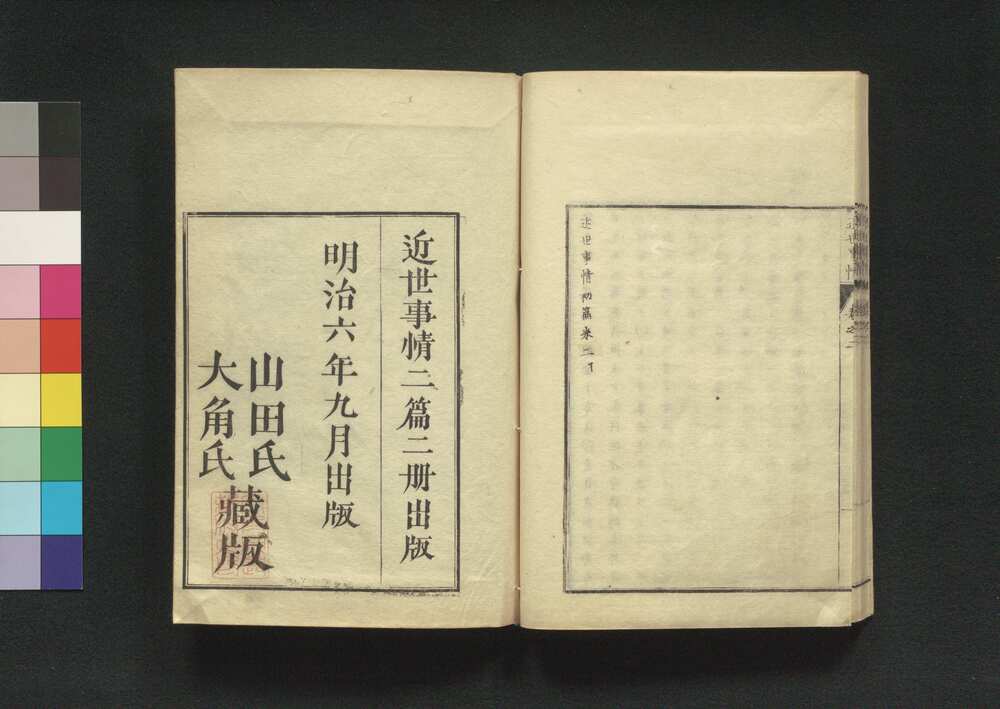 近世事情初篇卷二
近世事情二篇二册出版
明治六年九月出版
山田氏
大角氏
藏版